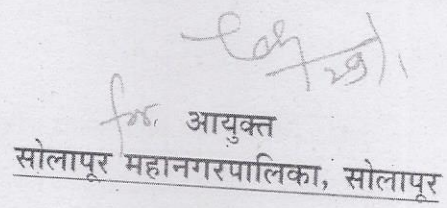 for. आयुक्त
सोलापूर महानगरपालिका, सोलापूर